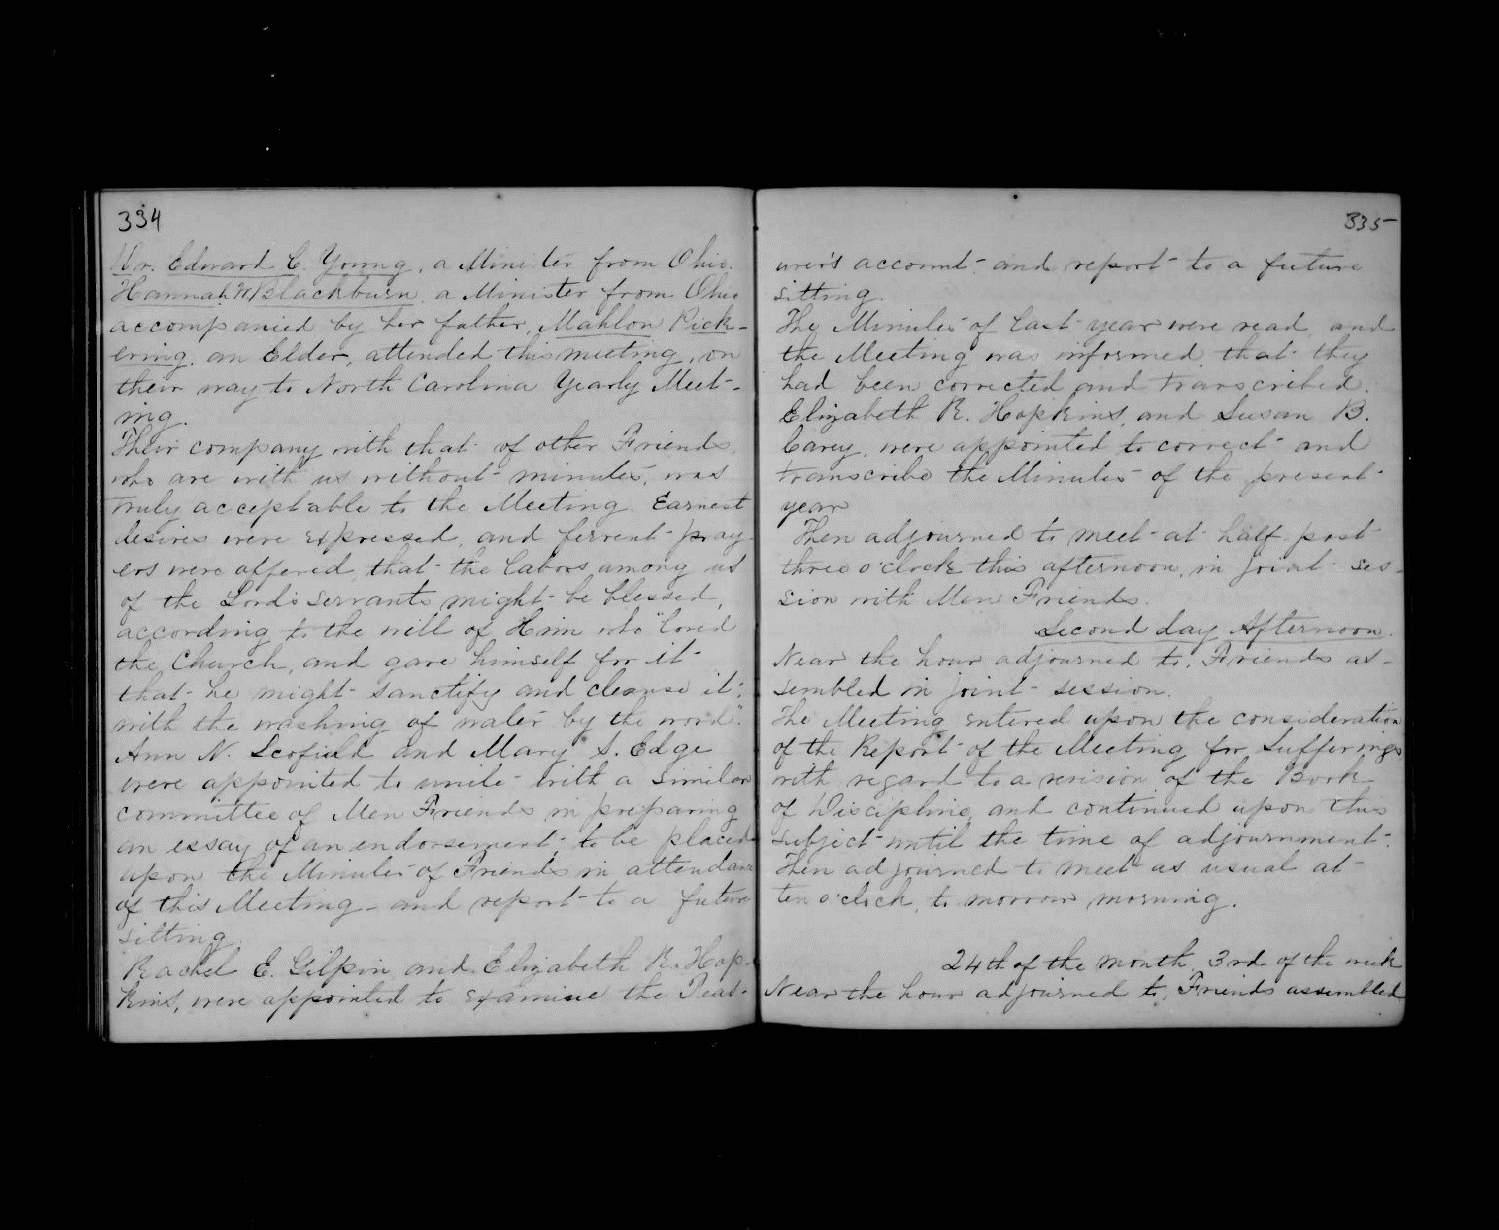 334
Edward C. Young, a Minister from Ohio.
Hannah W Blackburn, a Minister from Ohio
accompanied by her father, Mahlon Pick-
ering, an Elder, attended this meeting, on
their way to North Carolina Yearly Meet-
ing.
Their company with that of other Friends,
who are with us without minutes, was
truly acceptable to the Meeting. Earnest
desires were expressed, and fervent pray-
ers were offered, that the labors among us
of the Lord's servants might be blessed,
according to the will of Him who "loved
the Church, and gave himself for it
that he might sanctify and cleanse it,
with the washing of water by the word".
Ann N. Scofield and Mary S. Edge
were appointed to unite with a similar
committee of Men Friends in preparing
an essay of an endorsement, to be placed
upon the Minutes of Friends in attendance
of this Meeting - and report to a future
sitting.
Rachel E. Gilpin, and Elizabeth R. Hop-
kins, were appointed to examine the Teas-
335
urer's account and report to a future
sitting.
The Minutes of last year were read, and
the Meeting was informed that they
had been corrected and transcribed.
Elizabeth R. Hopkins, and Susan B.
Carey, were appointed to correct and
transcribe the Minutes of the present
year
Then adjourned to meet at half past
three o'clock this afternoon, in joint ses-
sion with Men Friends.
Second day Afternoon.
Near the hour adjourned to, Friends as-
sembled in joint session.
The Meeting entered upon the consideration
of the Report of the Meeting for Sufferings
with regard to a revision of the Book
of Discipline, and continued upon this
subject until the time of adjournment.
Then adjourned to meet as usual at
ten o'clock, to morrow morning.
24th of the month, 3rd of the week
Near the hour adjourned to, Friends assembled